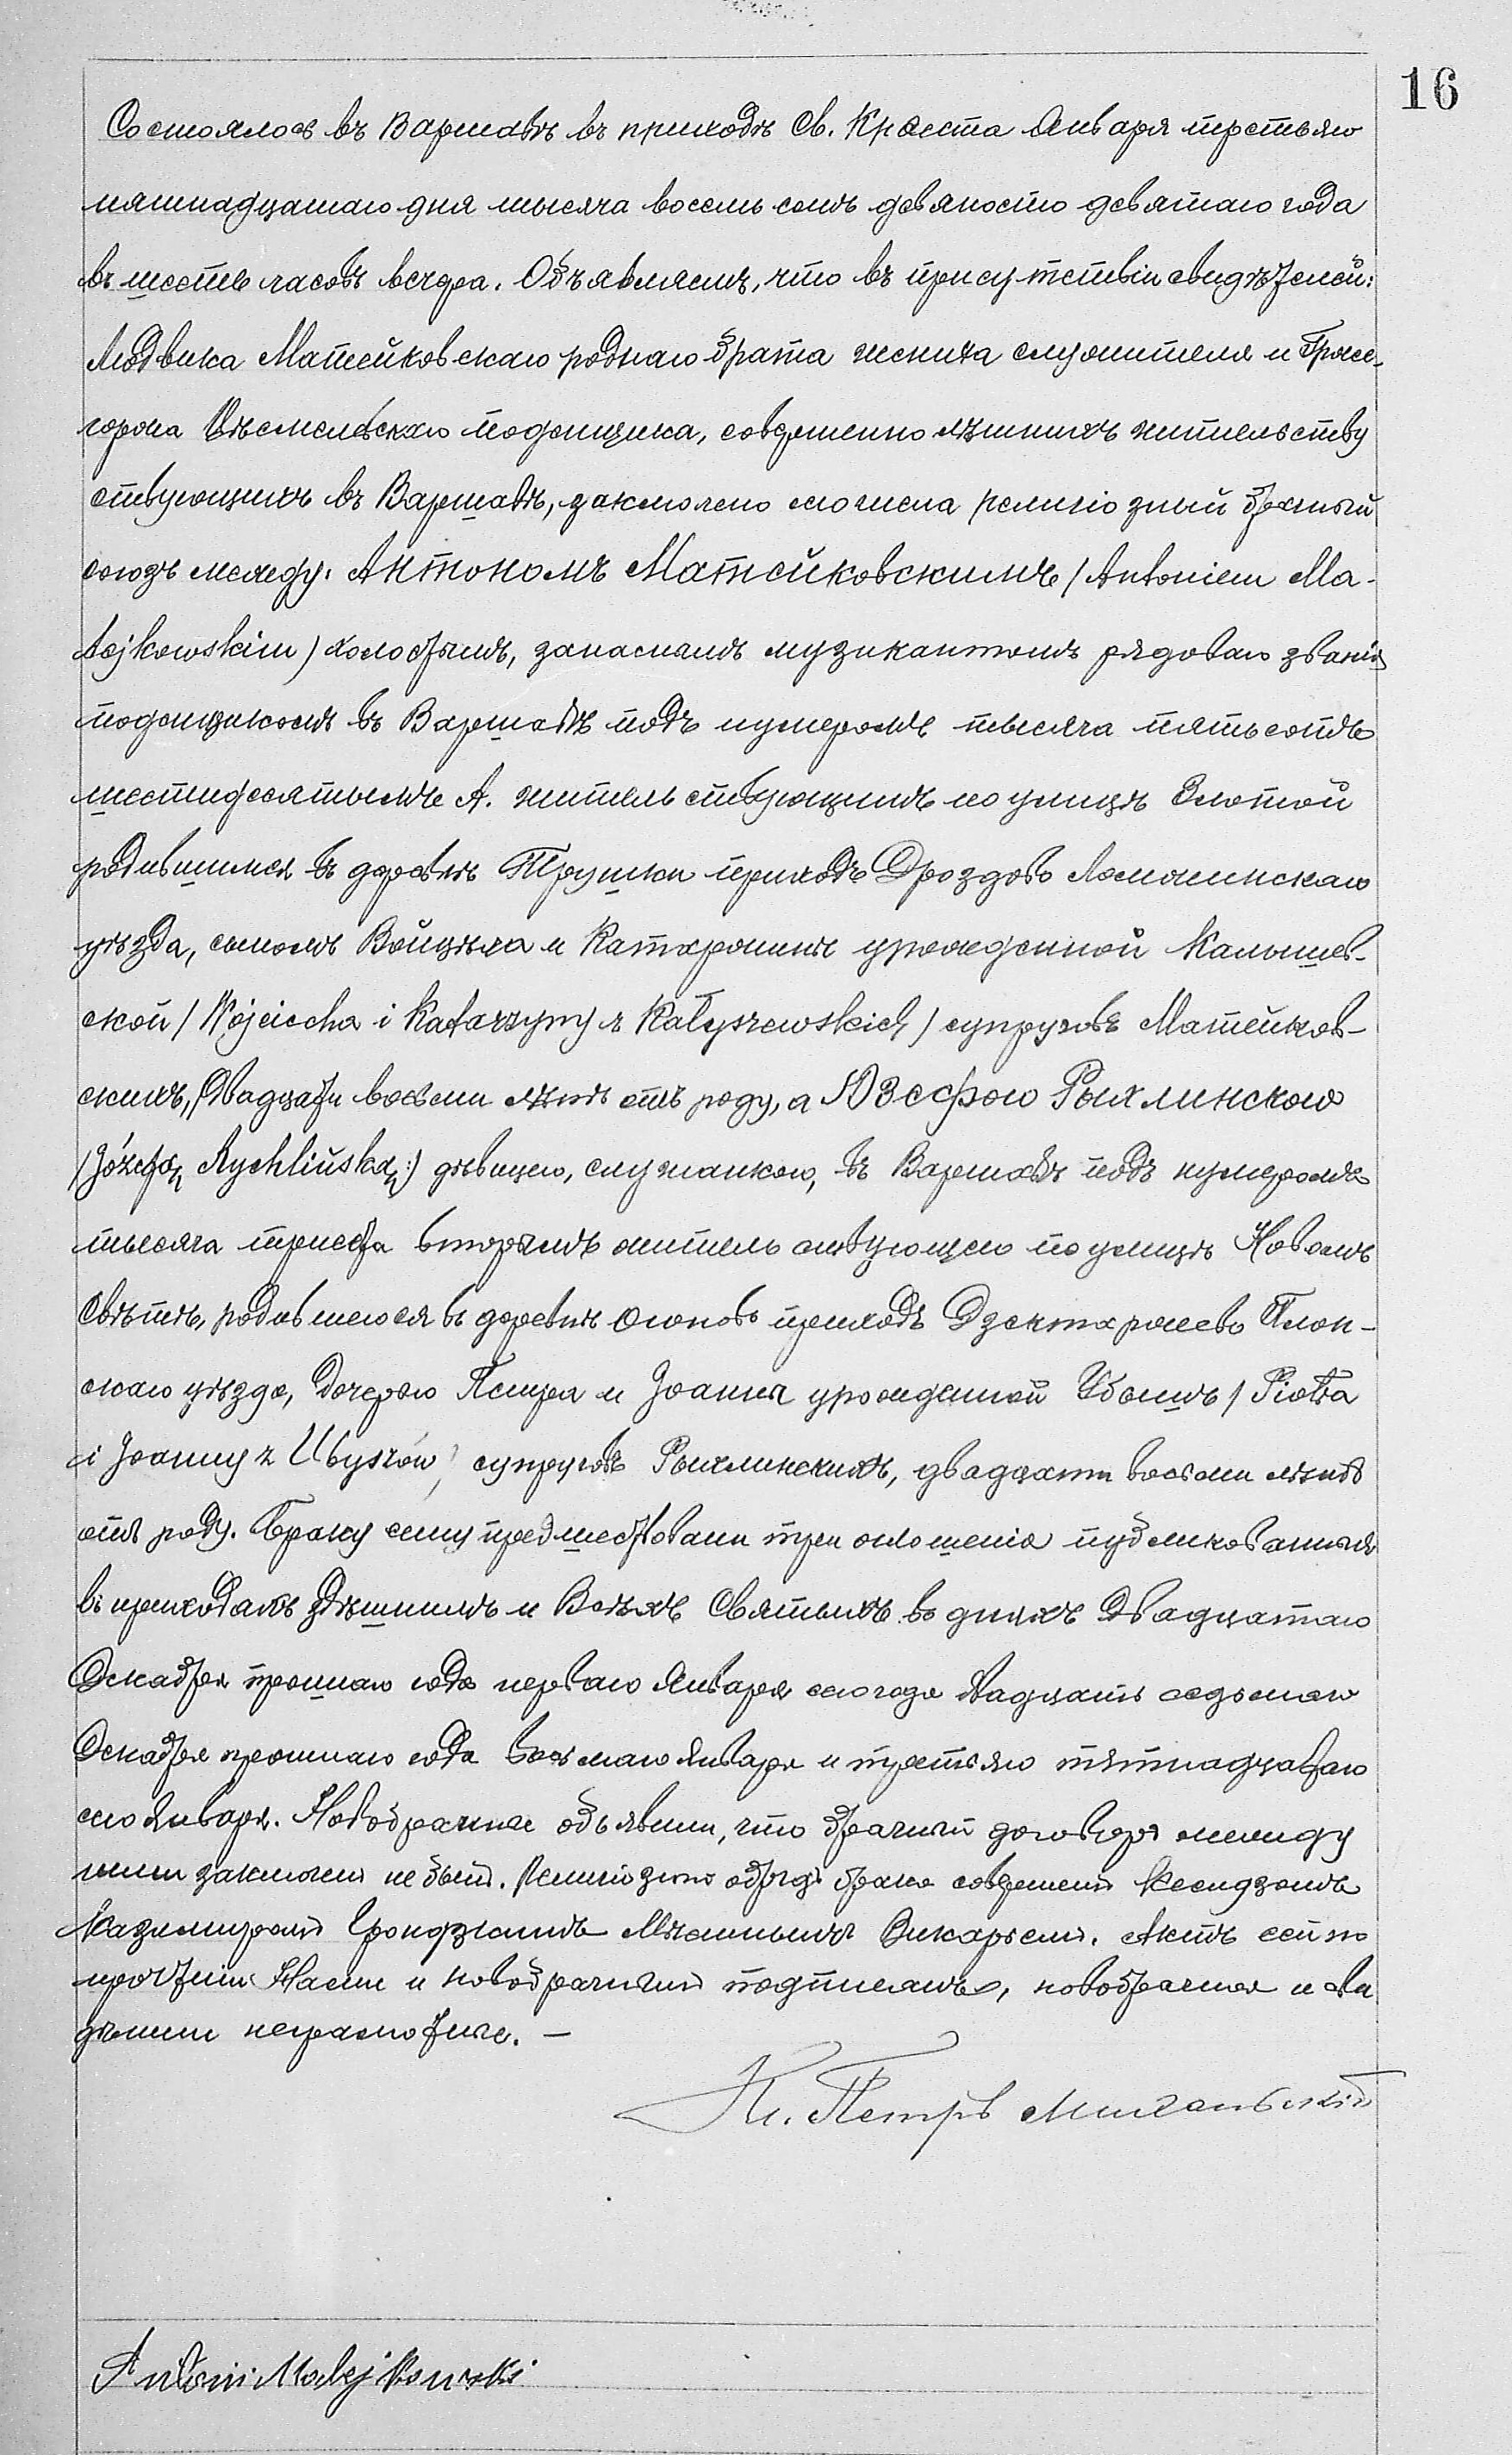 16
Состоялось въ Варшавѣ въ приходѣ Св. Креста Января третьяго
пятнадцатаго дня тысяча восемь сотъ девяносто девятаго года
въ шесть часовъ вечера. Объявляемъ, что въ присутствіи свидѣтелей:
Людвика Матейковскаго роднаго брата жениха служителя и Грже-
горжа поденщика, совершеннолѣтнихъ жительству
ствующихъ въ Варшавѣ, заключено сего числа религіозный брачный
союзъ между: Антономъ Матейковскимъ / Antoniem Ma-
tejkowskim) холостымъ, запаснымъ музикантомъ рядоваго званія
поденщикомъ въ Варшавѣ подъ нумеромъ тысяча пятьсотъ
шестидесятымъ А. жительствующимъ по улицѣ Злотой
родившимся въ деревнѣ Трушки приходѣ Дроздово Ломжинскаго
уѣзда, сыномъ Войцѣха и Катаржины урожденной Калышев-
ской / Wojciecha i Katarzyny z Kałyszewskich / супруговъ Матейков-
скихъ, двадцати восьми лѣтъ отъ роду, а Юзефою Рыхлинскою
/Józefą Rychlińską:) дѣвицею, служанкою, въ Варшавѣ подъ нумеромъ
тысяча триста вторымъ жительствующею по улицѣ Новомъ
Свѣтѣ, родившеюся въ деревнѣ приходѣ Дзектаржево Плон-
скаго уѣзда, дочерью Петра и Іоанны урожденной Убышъ / Piotra
i Joanny z Ubyszów / супруговъ Рыхлинскихъ, двадцати восьми лѣтъ
отъ роду. Браку сему предшествовали три оглашенія публикованныя
въ приходахъ здѣшнимъ и Всѣхъ Святыхъ въ дняхъ двадцатаго
Декабря прошлаго года перваго Января сего года двадцать седьмаго
Декабря прошлаго года восьмаго Января и третьяго пятнадцатаго
сего Января. Новобрачные объявили, что брачный договоръ между
ними заключенъ не былъ. Религіозный обрядъ брака совершенъ Ксендзомъ
Казимиромъ Мѣстнымъ Викаріемъ. Актъ сей по
прочтеніи Нами и новобрачнымъ подписанъ, новобрачная и сви
дѣтели неграмотные. —
Кс. Петръ
Antoni Matejkowski